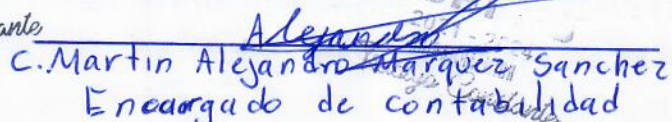 ante
Alejandro
C. Martin Alejandro Marquez Sanchez
Encargado de contabilidad